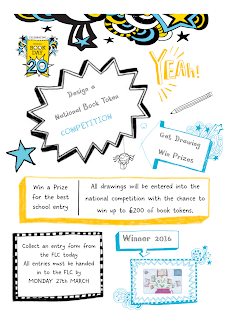 CELEBRATING
BOOK
DAY
20
YEAH!
Design a
National Book Token
COMPETITION
Get Drawing
Win Prizes
Win a Prize
for the best
school entry
All drawings will be entered into the
national competition with the chance to
win up to £200 of book tokens.
Collect an entry form from
the FLC today.
All entries must be handed
in to the FLC by
MONDAY 27th MARCH
Winner 2016